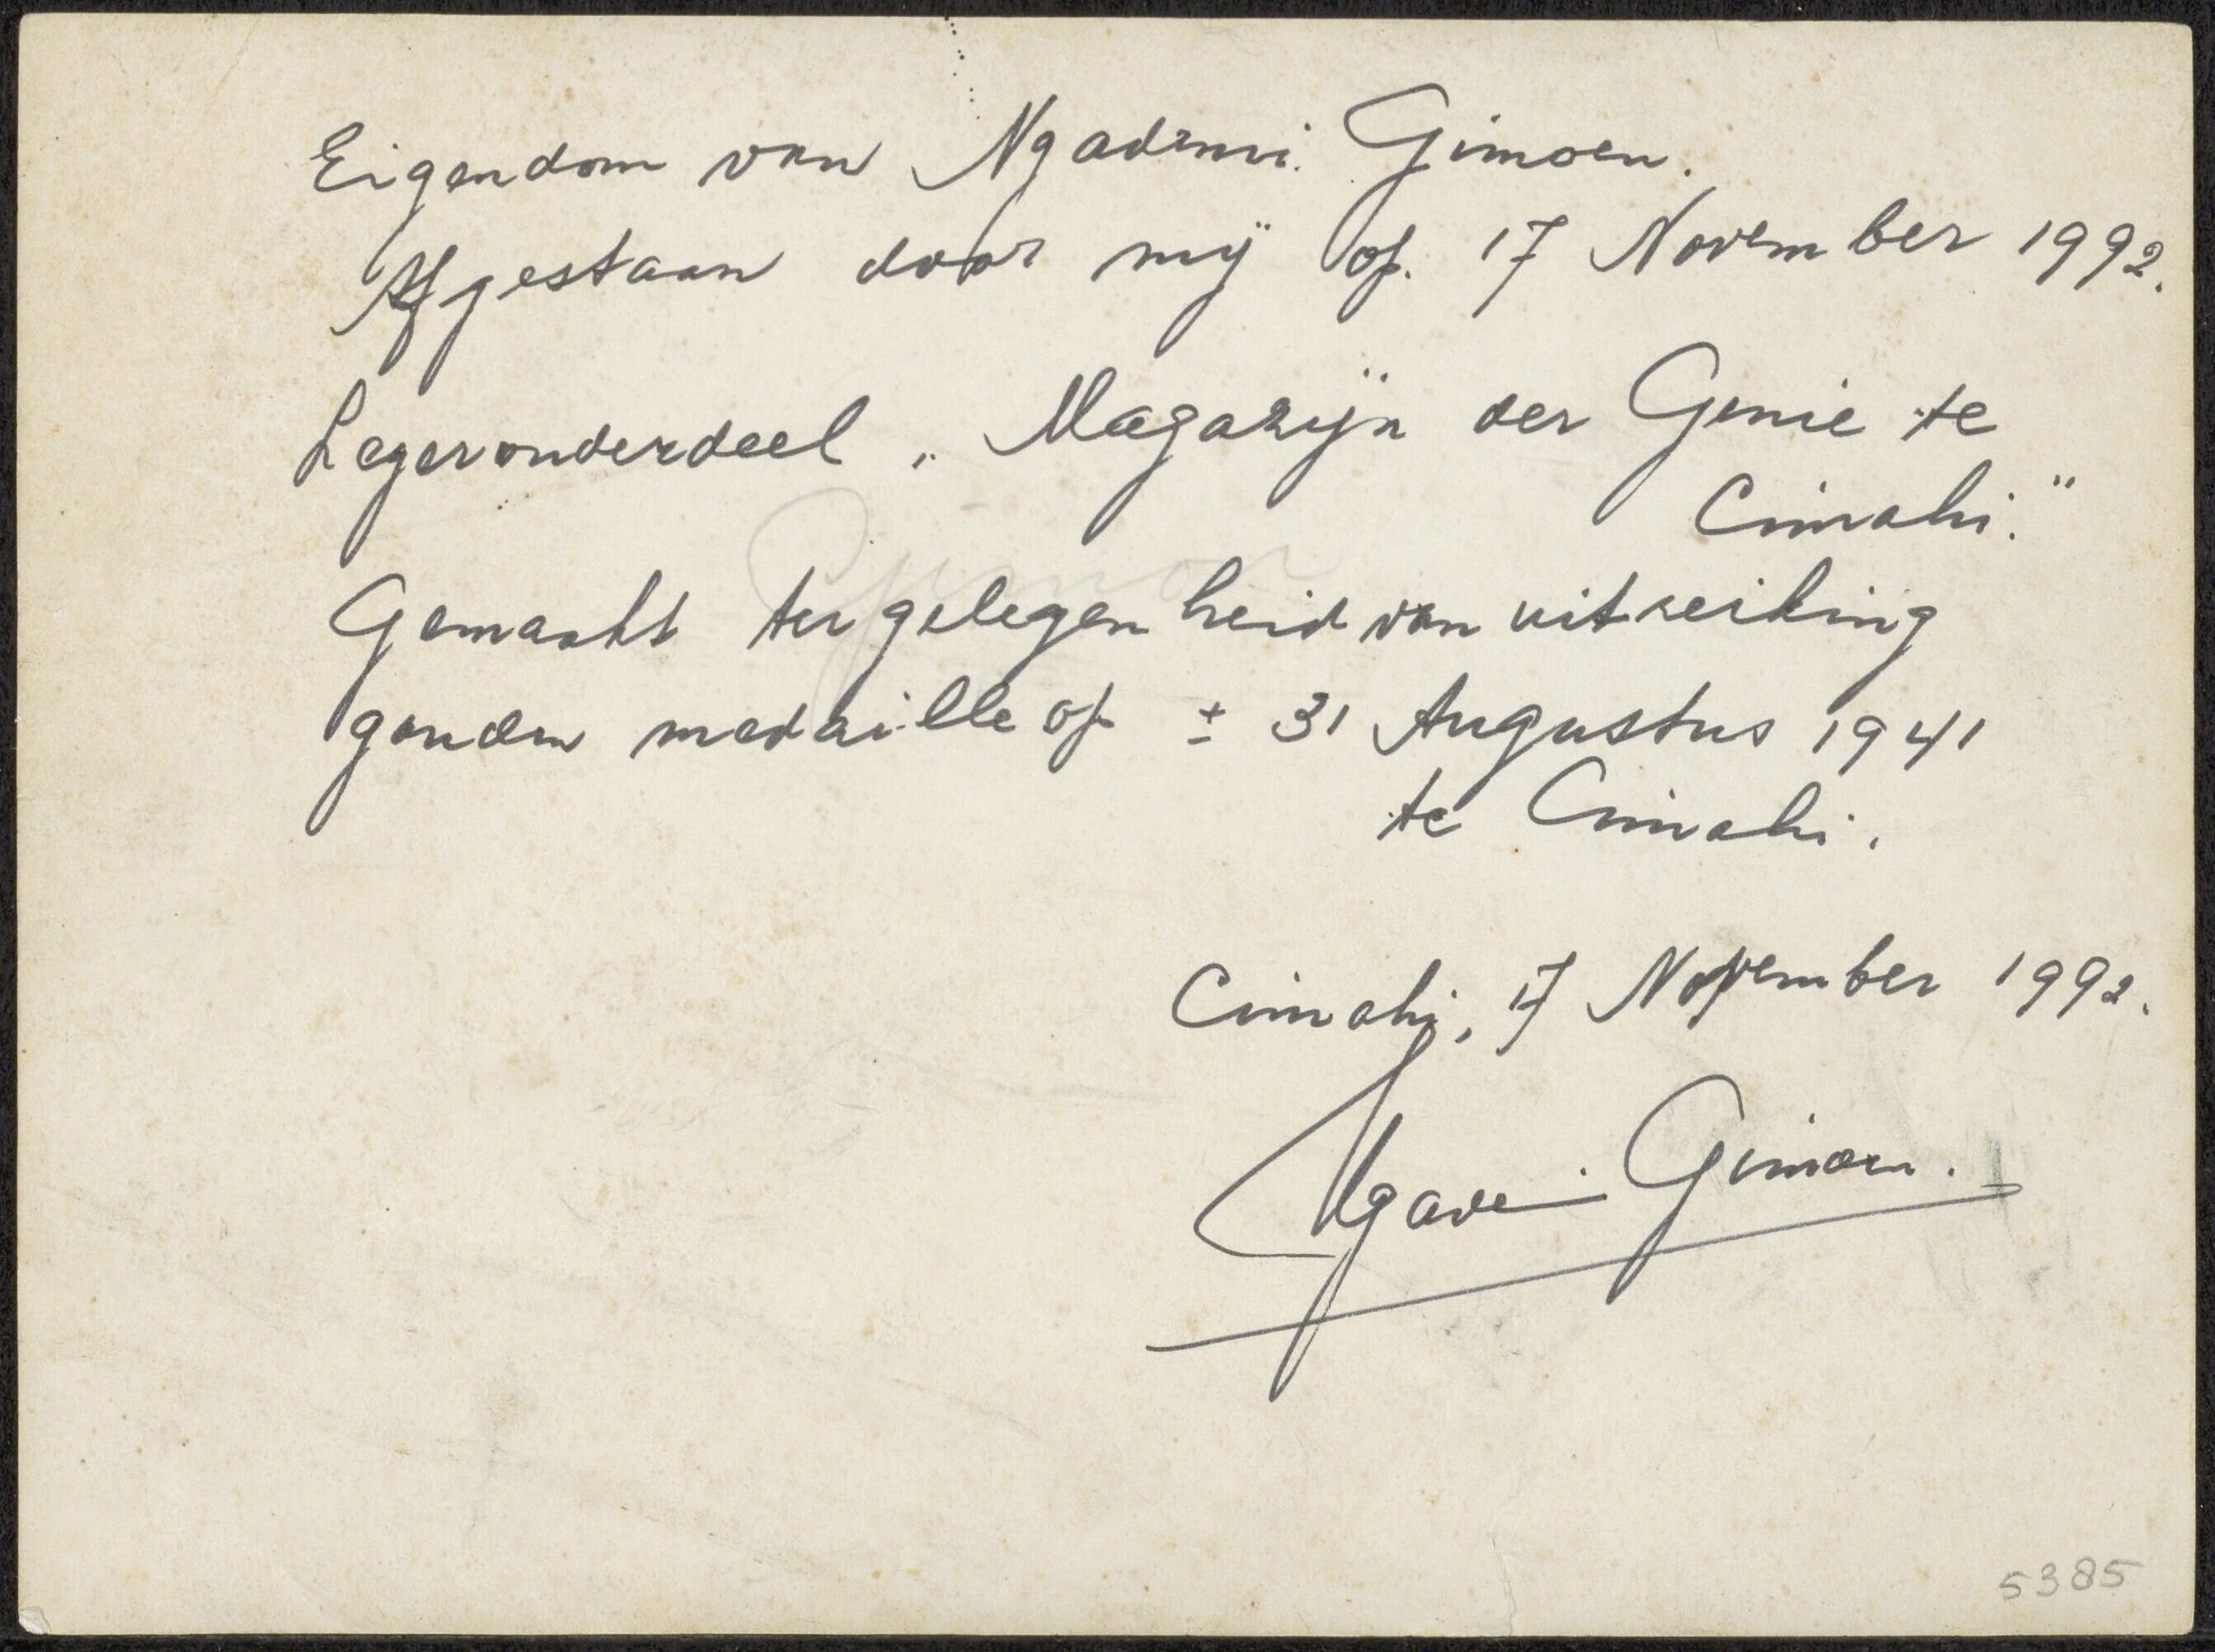 Eigendom van Ngademi. Gimoen.
Afgestaan door mij op. 17 November 1992.
Legeronderdeel „Magazijn der Genie te
Cimahi."
Gemaakt ter gelegenheid van uitreiking
gouden medaille op ± 31 Augustus 1941
te Cimahi.
Cimahi, 17 November 1992.
Gimoen.
5385